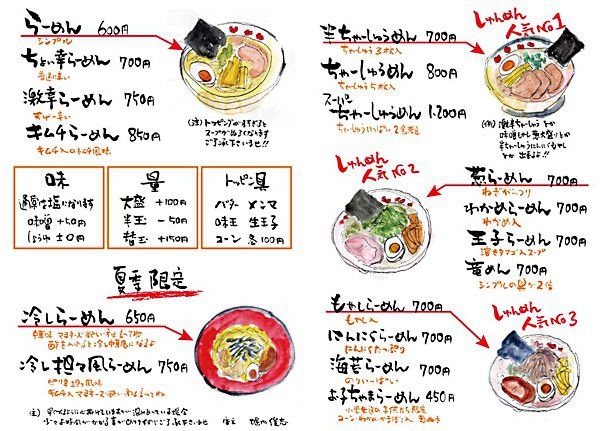 らーめん 600円
シンプル
ちょい辛らーめん 700円
普通に辛い
激辛らーめん 750円
すげー辛い
キムチらーめん 850円
キムチ入のキムチ風味
(注)トッピングがすぎると
スープがぬるくなります
ご了承下さいませ!!
味
通常は塩になります
味噌 +50円
しょうゆ ±0円
量
大盛 +100円
半玉 -50円
替玉 +150円
トッピン具
バター メンマ
味玉 生玉子
コーン 各100円
夏季限定
冷しらーめん 650円
冷し担々風らーめん 750円
半ちゃーしゅうめん 700円
ちゃーしゅう3枚入
ちゃーしゅうめん 800円
ちゃーしゅう5枚入
スーパー
ちゃーしゅうめん 1,200円
しゅんめん
人気No1
しゅんめん
人気No2
葱らーめん 700円
ねぎがっつり
わかめらーめん 700円
わかめ入
玉子らーめん 700円
溶きタマゴ入スープ
竜めん 700円
シンプルの具が2倍
もやしらーめん 700円
もやし入
にんにくらーめん 700円
にんにくたっぷり
海苔らーめん 700円
のりいっぱい
お子ちゃまらーめん 450円
しゅんめん
人気No3